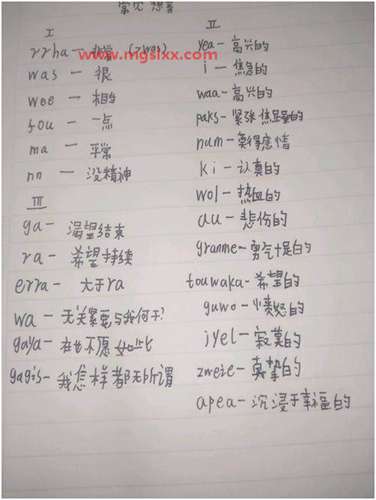 常见想音
I
rrha — 非常 (zwas)
was — 很
wee — 相当
fou — 一点
ma — 平常
nn — 没精神
III
ga — 渴望结束
ra — 希望持续
erra — 大于ra
wa — 无关紧要与我何干?
gaya — 在也不愿如此
gagis — 我怎样都无所谓
II
yea — 高兴的
i — 焦急的
waa — 高兴的
paks — 紧张焦虑的
num — 莫得感情
ki — 认真的
wol — 热血的
au — 悲伤的
granme — 勇气十足的
touwaka — 希望的
guwo — 愤怒的
iyel — 寂寞的
zweie — 真挚的
apea — 沉浸于幸福的
www.mgslxx.com